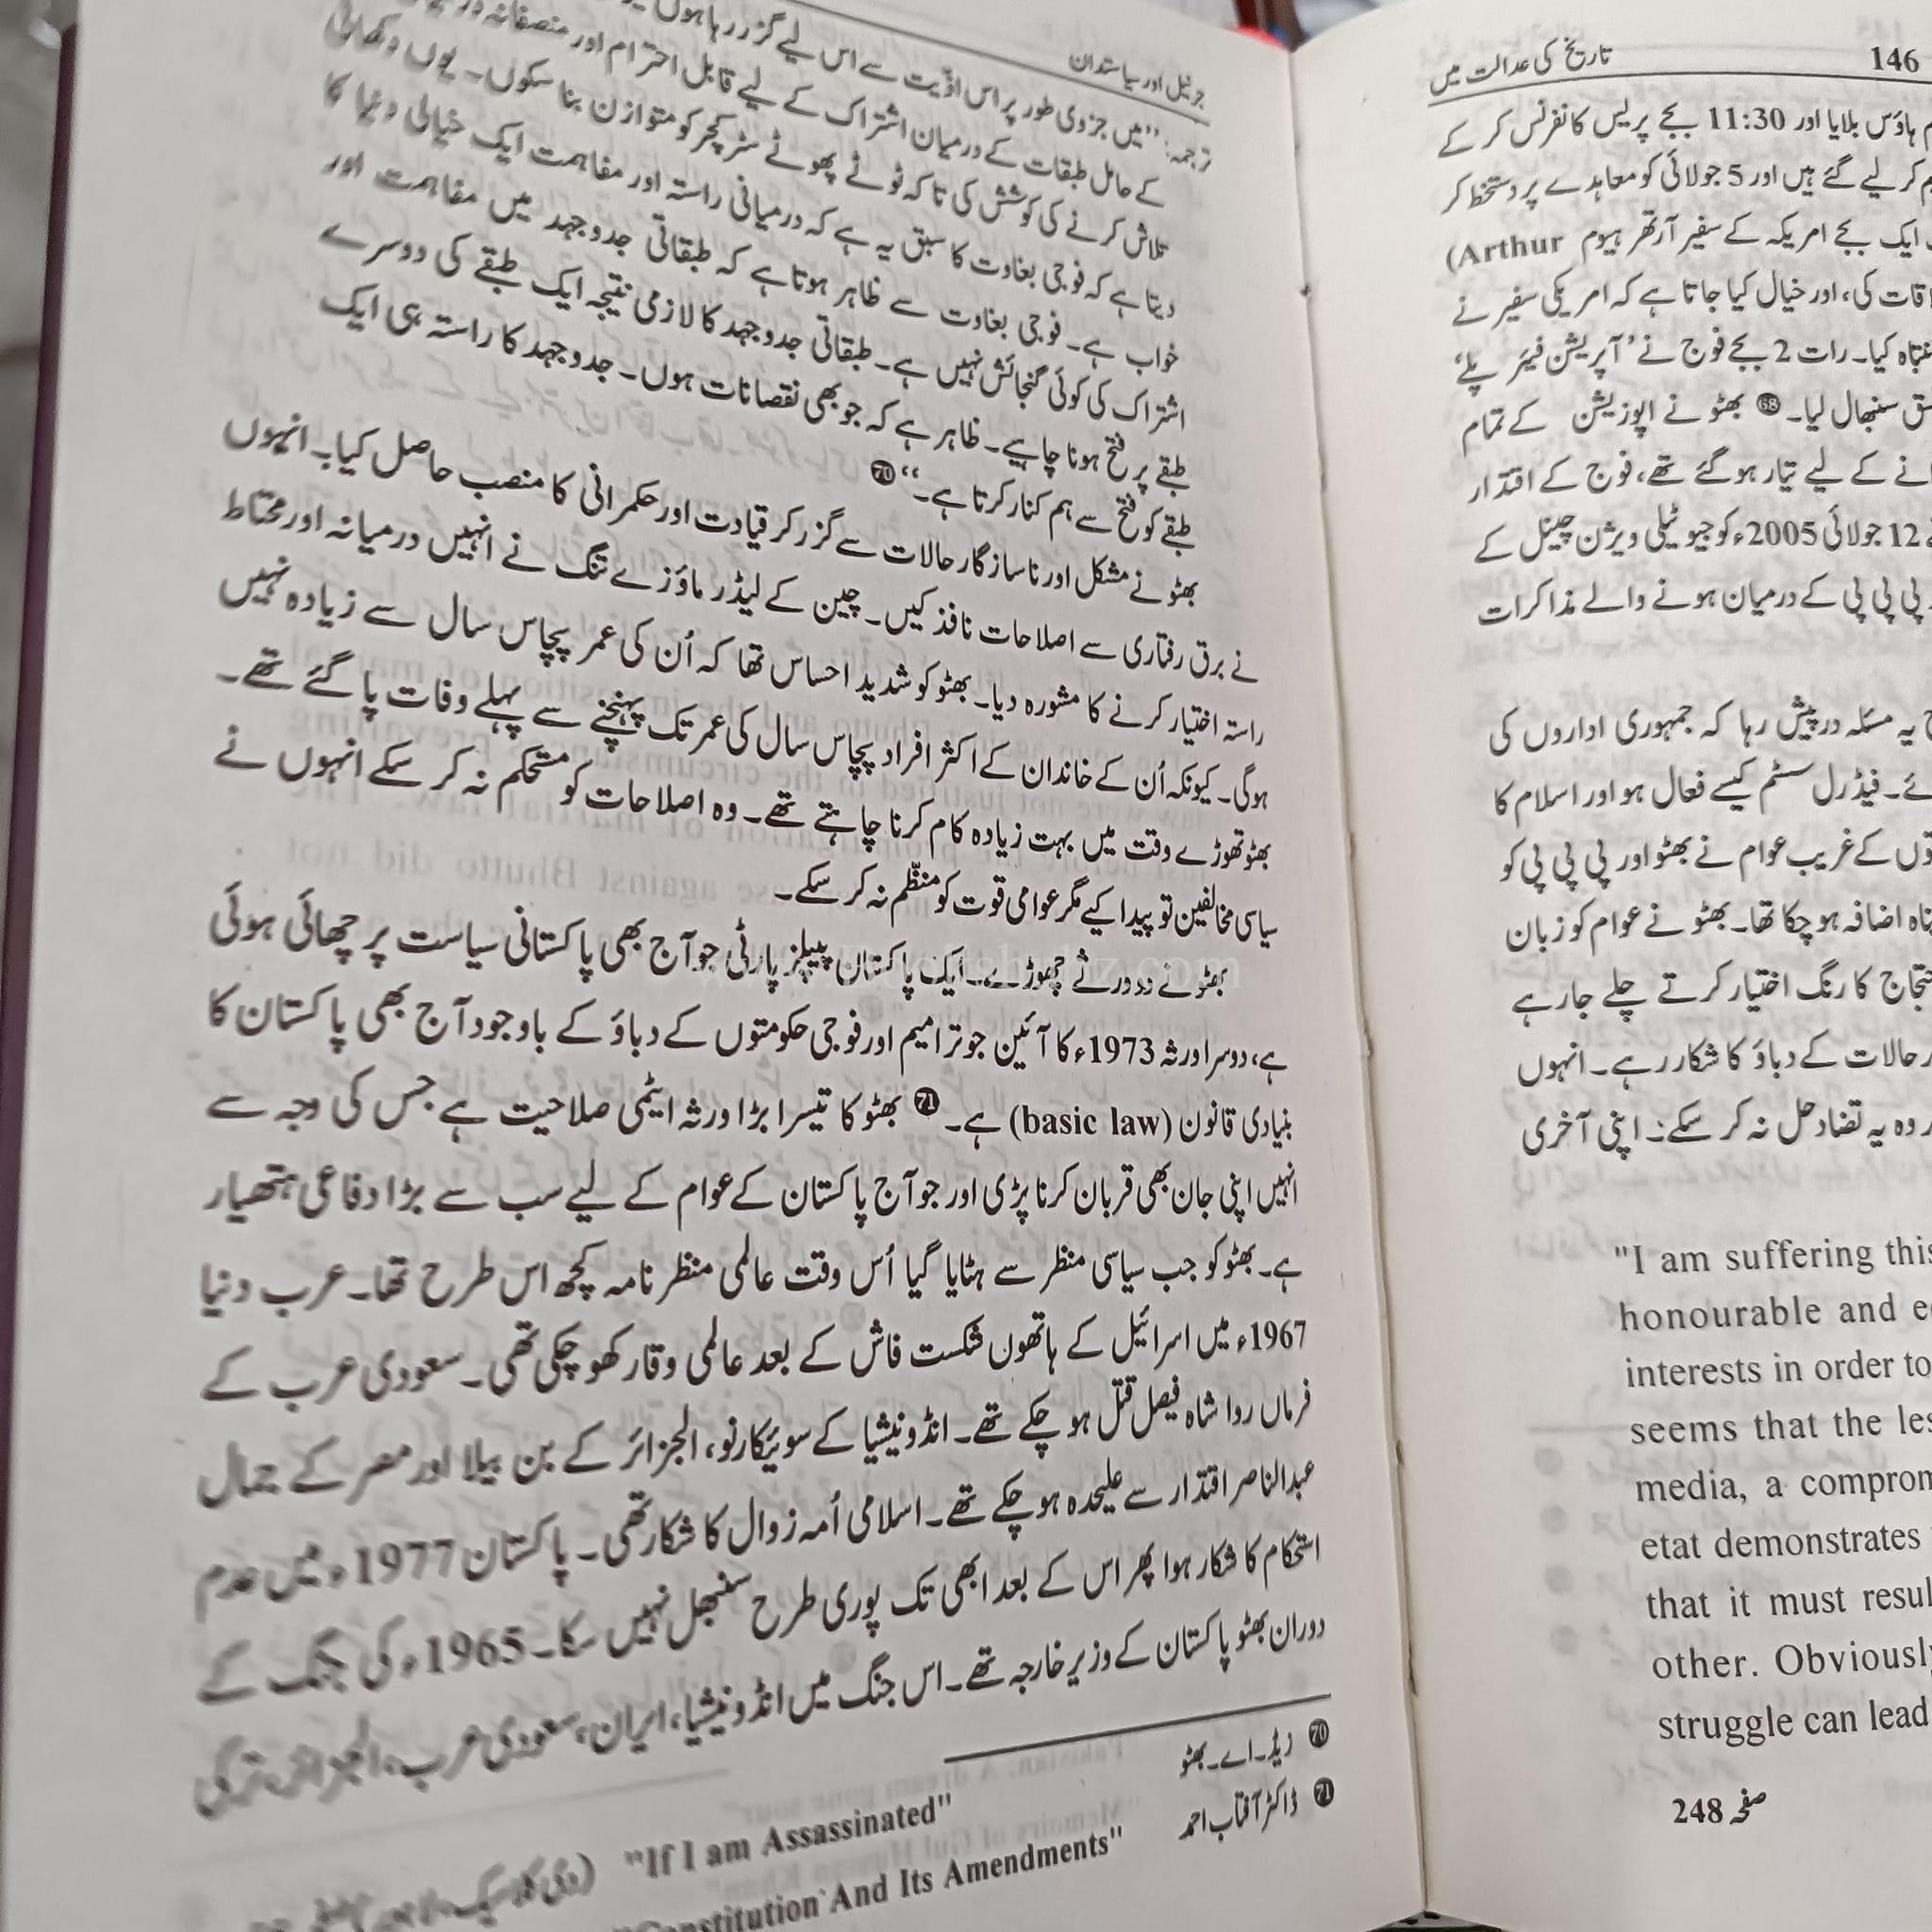 146
تاریخ کی عدالت میں
ہاؤس بلایا اور 11:30 بجے پریس کانفرنس کر کے
کر لیے گئے ہیں اور 5 جولائی کو معاہدے پر دستخط کر
ایک بجے امریکہ کے سفیر آرتھر ہیوم Arthur)
قات کی، اور خیال کیا جاتا ہے کہ امریکی سفیر نے
کیا۔ رات 2 بجے فوج نے ’آپریشن فیئر پلے‘
سنبھال لیا۔ بھٹو نے اپوزیشن کے تمام
نے کے لیے تیار ہو گئے تھے، فوج کے اقتدار
12 جولائی 2005ء کو جیو ٹیلی ویژن چینل کے
پی پی پی کے درمیان ہونے والے مذاکرات
یہ مسئلہ درپیش رہا کہ جمہوری اداروں کی
ئے۔ فیڈرل سسٹم کیسے فعال ہو اور اسلام کا
وں کے غریب عوام نے بھٹو اور پی پی پی کو
اضافہ ہو چکا تھا۔ بھٹو نے عوام کو زبان
کا رنگ اختیار کرتے چلے جا رہے
حالات کے دباؤ کا شکار رہے۔ انہوں
وہ یہ تضاد حل نہ کر سکے۔ اپنی آخری
"I am suffering this
honourable and e
interests in order to
seems that the les
media, a comprom
etat demonstrates
that it must resul
other. Obviously
struggle can lead
صفحہ 248
جرنیل اور سیاستدان
ترجمہ: ’’میں جزوی طور پر اس اذیت سے اس لیے گزر رہا ہوں
کے حامل طبقات کے درمیان اشتراک کے لیے قابل احترام اور منصفانہ
تلاش کرنے کی کوشش کی تاکہ ٹوٹے پھوٹے سٹرکچر کو متوازن بنا سکوں۔ یوں دکھائی
دیتا ہے کہ فوجی بغاوت کا سبق یہ ہے کہ درمیانی راستہ اور مفاہمت ایک خیالی دنیا کا
خواب ہے۔ فوجی بغاوت سے ظاہر ہوتا ہے کہ طبقاتی جدوجہد میں مفاہمت اور
اشتراک کی کوئی گنجائش نہیں ہے۔ طبقاتی جدوجہد کا لازمی نتیجہ ایک طبقے کی دوسرے
طبقے پر فتح ہونا چاہیے۔ ظاہر ہے کہ جو بھی نقصانات ہوں۔ جدوجہد کا راستہ ہی ایک
طبقے کو فتح سے ہم کنار کرتا ہے۔‘‘ 70
بھٹو نے مشکل اور ناسازگار حالات سے گزر کر قیادت اور حکمرانی کا منصب حاصل کیا۔ انہوں
نے برق رفتاری سے اصلاحات نافذ کیں۔ چین کے لیڈر ماؤزے تنگ نے انہیں درمیانہ اور محتاط
راستہ اختیار کرنے کا مشورہ دیا۔ بھٹو کو شدید احساس تھا کہ اُن کی عمر پچاس سال سے زیادہ نہیں
ہوگی۔ کیونکہ اُن کے خاندان کے اکثر افراد پچاس سال کی عمر تک پہنچنے سے پہلے وفات پا گئے تھے۔
بھٹو تھوڑے وقت میں بہت زیادہ کام کرنا چاہتے تھے۔ وہ اصلاحات کو مستحکم نہ کر سکے انہوں نے
سیاسی مخالفین تو پیدا کیے مگر عوامی قوت کو منظّم نہ کر سکے۔
بھٹو نے دو ورثے چھوڑے۔ ایک پاکستان پیپلز پارٹی جو آج بھی پاکستانی سیاست پر چھائی ہوئی
ہے، دوسرا ورثہ 1973ء کا آئین جو ترامیم اور فوجی حکومتوں کے دباؤ کے باوجود آج بھی پاکستان کا
بنیادی قانون (basic law) ہے۔ 71 بھٹو کا تیسرا بڑا ورثہ ایٹمی صلاحیت ہے جس کی وجہ سے
انہیں اپنی جان بھی قربان کرنا پڑی اور جو آج پاکستان کے عوام کے لیے سب سے بڑا دفاعی ہتھیار
ہے۔ بھٹو کو جب سیاسی منظر سے ہٹایا گیا اُس وقت عالمی منظر نامہ کچھ اس طرح تھا۔ عرب دنیا
1967ء میں اسرائیل کے ہاتھوں شکست فاش کے بعد عالمی وقار کھو چکی تھی۔ سعودی عرب کے
فرماں روا شاہ فیصل قتل ہو چکے تھے۔ انڈونیشیا کے سوئیکارنو، الجزائر کے بن بیلا اور مصر کے جمال
عبدالناصر اقتدار سے علیحدہ ہو چکے تھے۔ اسلامی اُمہ زوال کا شکار تھی۔ پاکستان 1977ء میں عدم
استحکام کا شکار ہوا پھر اس کے بعد ابھی تک پوری طرح سنبھل نہیں سکا۔ 1965ء کی جنگ کے
دوران بھٹو پاکستان کے وزیر خارجہ تھے۔ اس جنگ میں انڈونیشیا، ایران، سعودی عرب، الجزائر، ترکی
70 زیڈ۔اے۔بھٹو "If I am Assassinated"
71 ڈاکٹر آفتاب احمد "Constitution And Its Amendments"